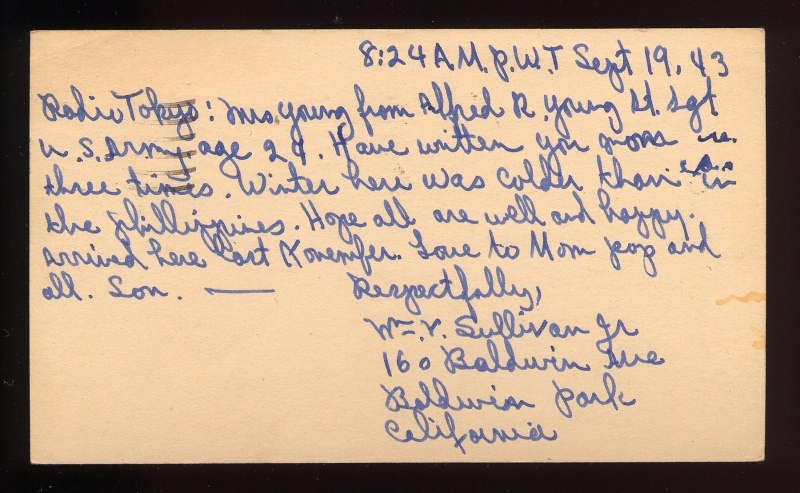 8:24 A.M. P.W.T Sept 19, 43
Radio Tokyo: Mrs Young from Alfred R. Young St. Sgt
U.S. Army age 29. Have written you
three times. Winter here was colder than in
the Phillippines. Hope all are well and happy.
Arrived here last November. Love to Mom pop and
all. Son. —
Respectfully,
Wm. V. Sullivan Jr
160 Baldwin Ave
Baldwin Park
California